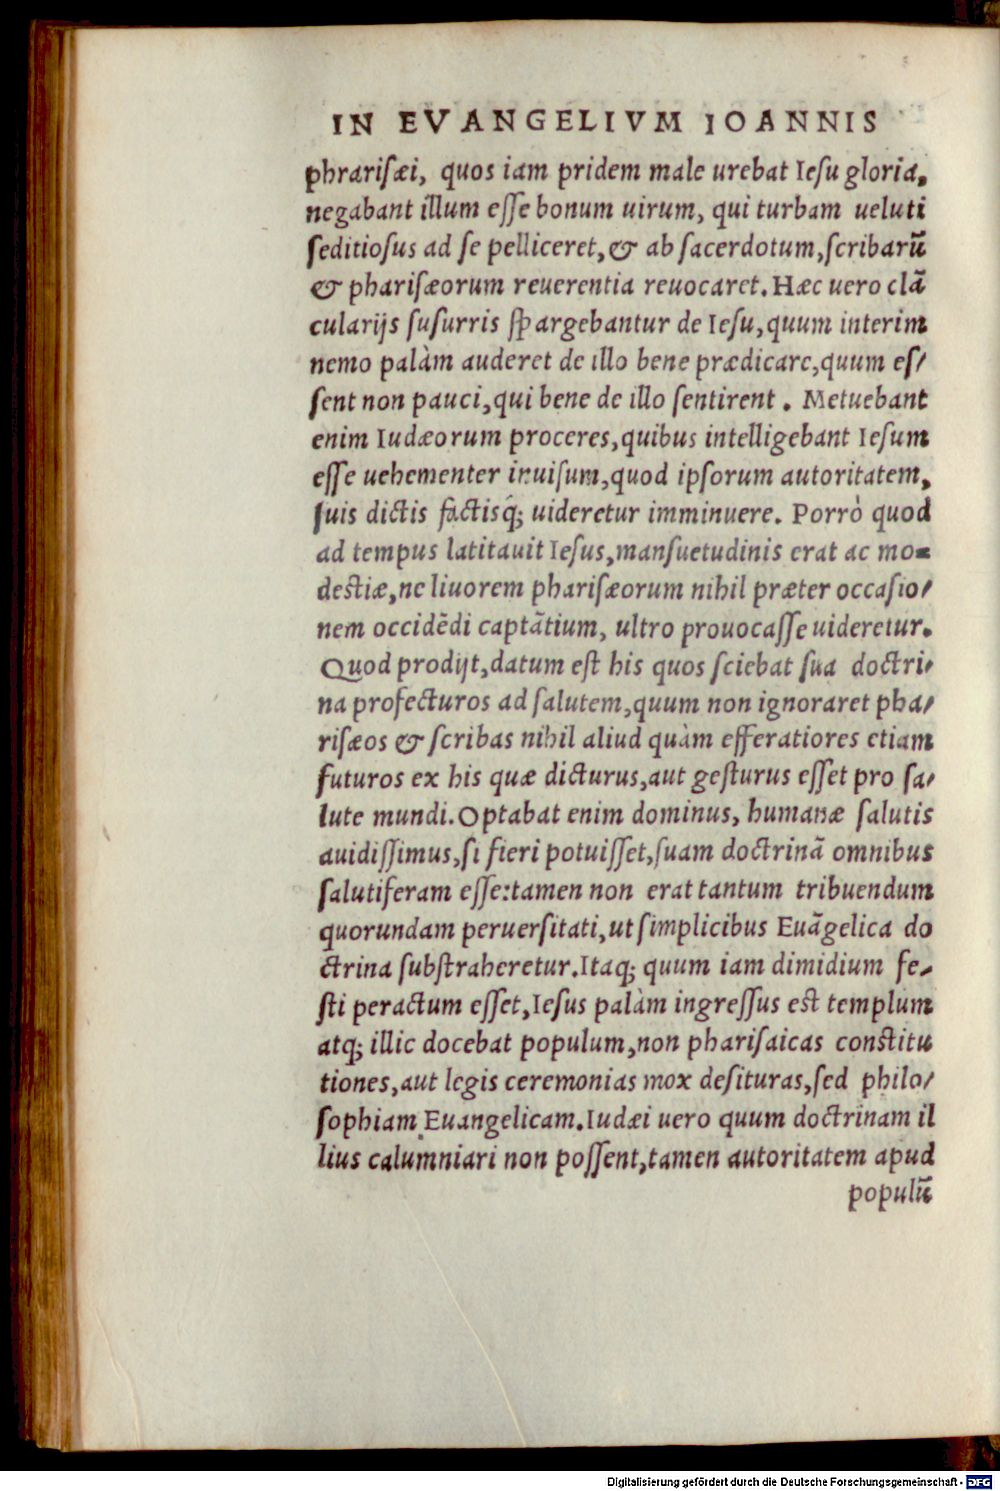 IN EVANGELIVM IOANNIS
phrarisæi, quos iam pridem male urebat Iesu gloria,
negabant illum esse bonum uirum, qui turbam ueluti
seditiosus ad se pelliceret, & ab sacerdotum, scribarū
& pharisæorum reuerentia reuocaret. Hæc uero clā
cularijs susurris spargebantur de Iesu, quum interim
nemo palàm auderet de illo bene prædicare, quum es/
sent non pauci, qui bene de illo sentirent. Metuebant
enim Iudæorum proceres, quibus intelligebant Iesum
esse uehementer inuisum, quod ipsorum autoritatem,
suis dictis factisq́; uideretur imminuere. Porrò quod
ad tempus latitauit Iesus, mansuetudinis erat ac mo=
destiæ, ne liuorem pharisæorum nihil præter occasio/
nem occidēdi captātium, ultro prouocasse uideretur.
Quod prodijt, datum est his quos sciebat sua doctri/
na profecturos ad salutem, quum non ignoraret pha/
risæos & scribas nihil aliud quàm efferatiores etiam
futuros ex his quæ dicturus, aut gesturus esset pro sa/
lute mundi. Optabat enim dominus, humanæ salutis
auidissimus, si fieri potuisset, suam doctrinā omnibus
salutiferam esse: tamen non erat tantum tribuendum
quorundam peruersitati, ut simplicibus Euāgelica do
ctrina substraheretur. Itaq; quum iam dimidium fe/
sti peractum esset, Iesus palàm ingressus est templum
atq; illic docebat populum, non pharisaicas constitu
tiones, aut legis ceremonias mox desituras, sed philo/
sophiam Euangelicam. Iudæi uero quum doctrinam il
lius calumniari non possent, tamen autoritatem apud
populū
Digitalisierung gefördert durch die Deutsche Forschungsgemeinschaft - DFG